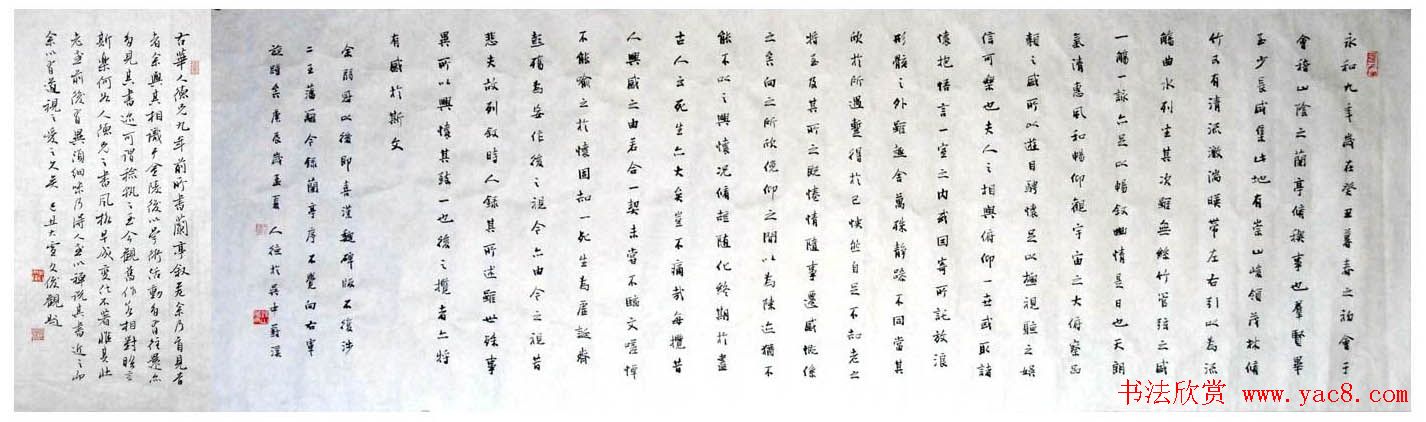 永和九年歲在癸丑暮春之初會于
會稽山陰之蘭亭脩稧事也羣賢畢
至少長咸集此地有崇山峻領茂林脩
竹又有清流激湍暎帶左右引以為流
觴曲水列坐其次雖無絲竹管弦之盛
一觴一詠亦足以暢敘幽情是日也天朗
氣清惠風和暢仰觀宇宙之大俯察品
類之盛所以遊目騁懷足以極視聽之娛
信可樂也夫人之相與俯仰一世或取諸
懷抱悟言一室之內或因寄所託放浪
形骸之外雖趣舍萬殊靜躁不同當其
欣於所遇蹔得於己怏然自足不知老之
將至及其所之既惓情隨事遷感慨係
之矣向之所欣俛仰之間以為陳迹猶不
能不以之興懷況脩短隨化終期於盡
古人云死生亦大矣豈不痛哉每攬昔
人興感之由若合一契未嘗不臨文嗟悼
不能喻之於懷固知一死生為虛誕齊
彭殤為妄作後之視今亦由今之視昔
悲夫故列敘時人錄其所述雖世殊事
異所以興懷其致一也後之攬者亦將
有感於斯文
余弱冠以後即喜漢魏碑版不復涉
二王藩籬今錄蘭亭序不覺向右軍
矣庚辰歲孟夏人德於吳中蘇溪
古華人德兄九年前所書蘭亭敘
者余與其相識於金陵後以學術活動
見其書迹可謂至今觀舊作
斯樂何如人德兄之書風格早成變化不著
老其前後
余以道視之
書法欣赏 www.yac8.com